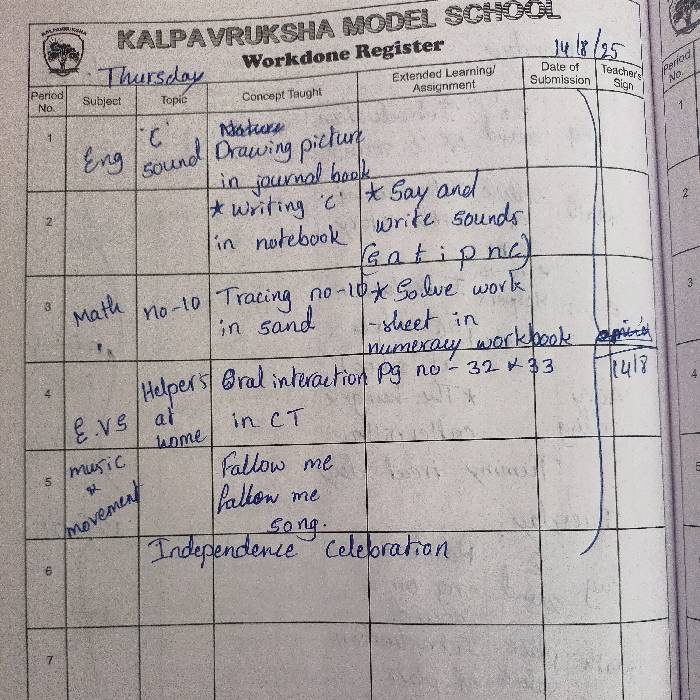 KALPAVRUKSHA MODEL SCHOOL
Workdone Register
14/8/25
Thursday
Period No. Subject Topic Concept Taught Extended Learning/ Assignment Date of Submission Teacher's Sign
1 Eng 'c' sound Nature Drawing picture in journal book
2 * writing 'c' in notebook * Say and write sounds (s a t i p n c)
3 Math no-10 Tracing no-10 in sand * Solve work-sheet in numeracy workbook
4 E.VS Helpers at home Oral interaction in CT Pg no - 32 & 33 14/8
5 music & movement Fallow me fallow me song.
6 Independence Celebration
7
Period No.
1
2
3
4
5